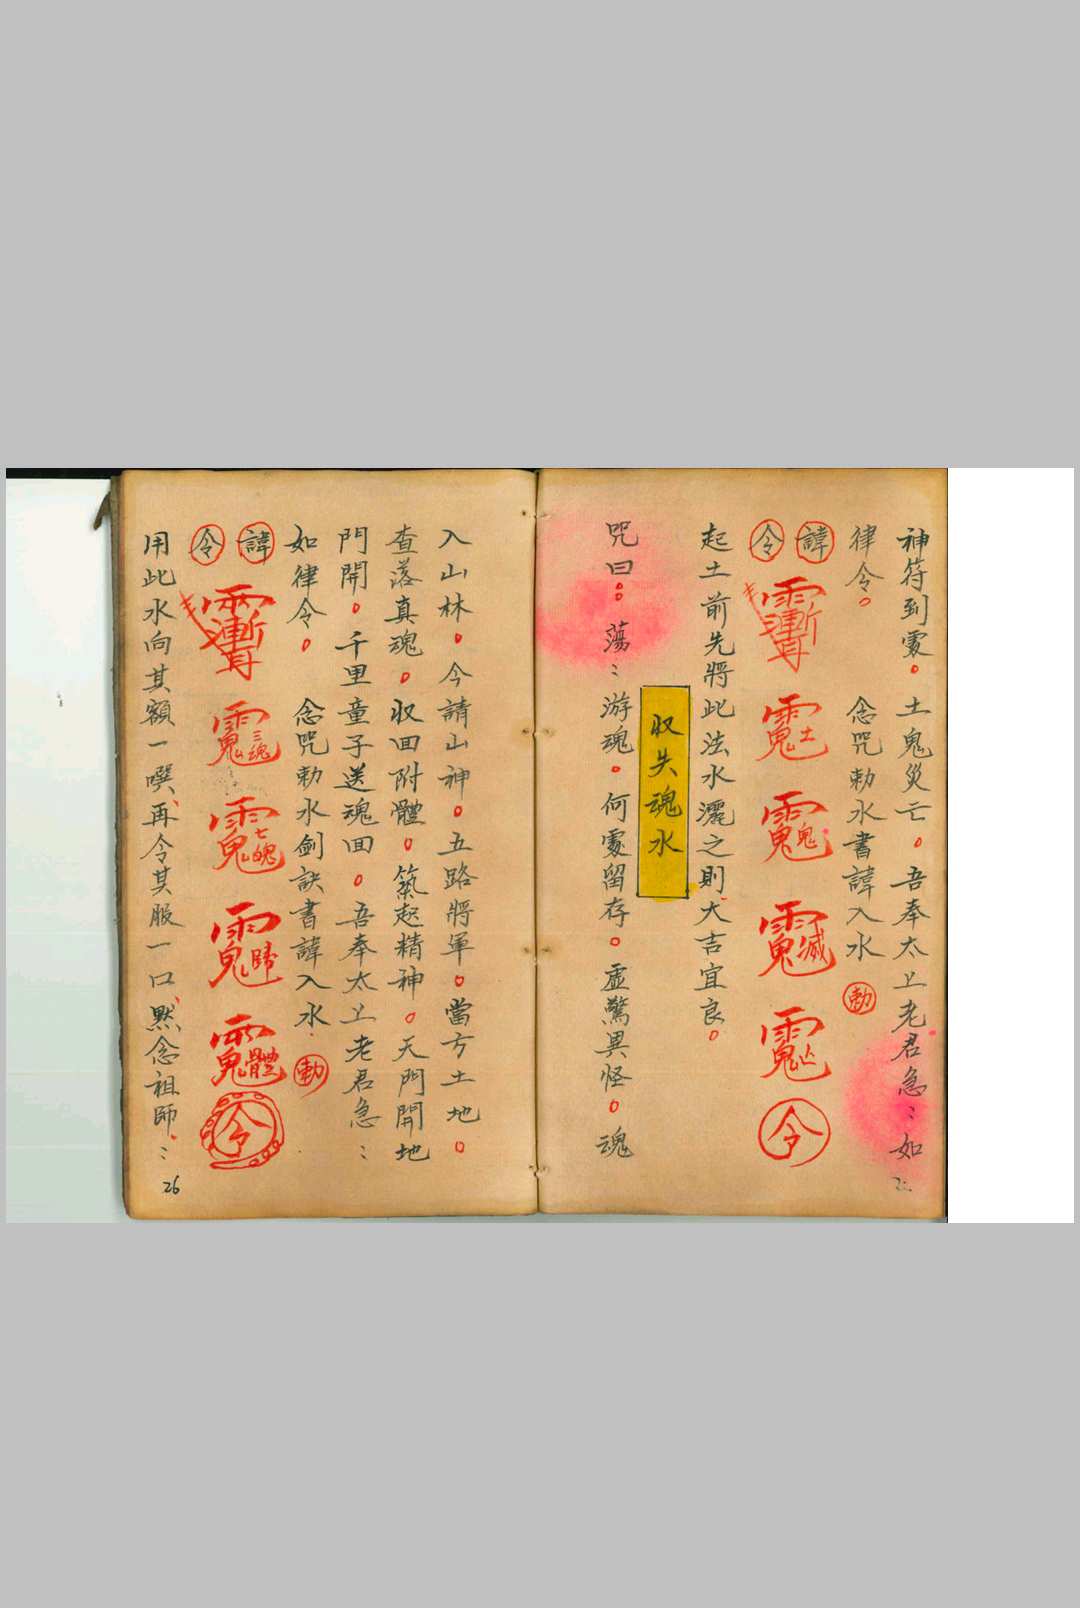 神符到處。土鬼災亡。吾奉太上老君急〻如
律令。 念咒勅水書諱入水 勅
諱
令
土
鬼
滅
亡
令
起土前先將此法水灑之則大吉宜良。
收失魂水
咒曰：蕩〻游魂。何處留存。虛驚異怪。魂
入山林。今請山神。五路將軍。當方土地。
查落真魂。收回附體。築起精神。天門開地
門開。千里童子送魂回。吾奉太上老君急〻
如律令。 念咒勅水劍訣書諱入水. 勅
諱
令
三魂
七魄
歸
體
令
用此水向其額一噀、再令其服一口、默念祖師.〻
26